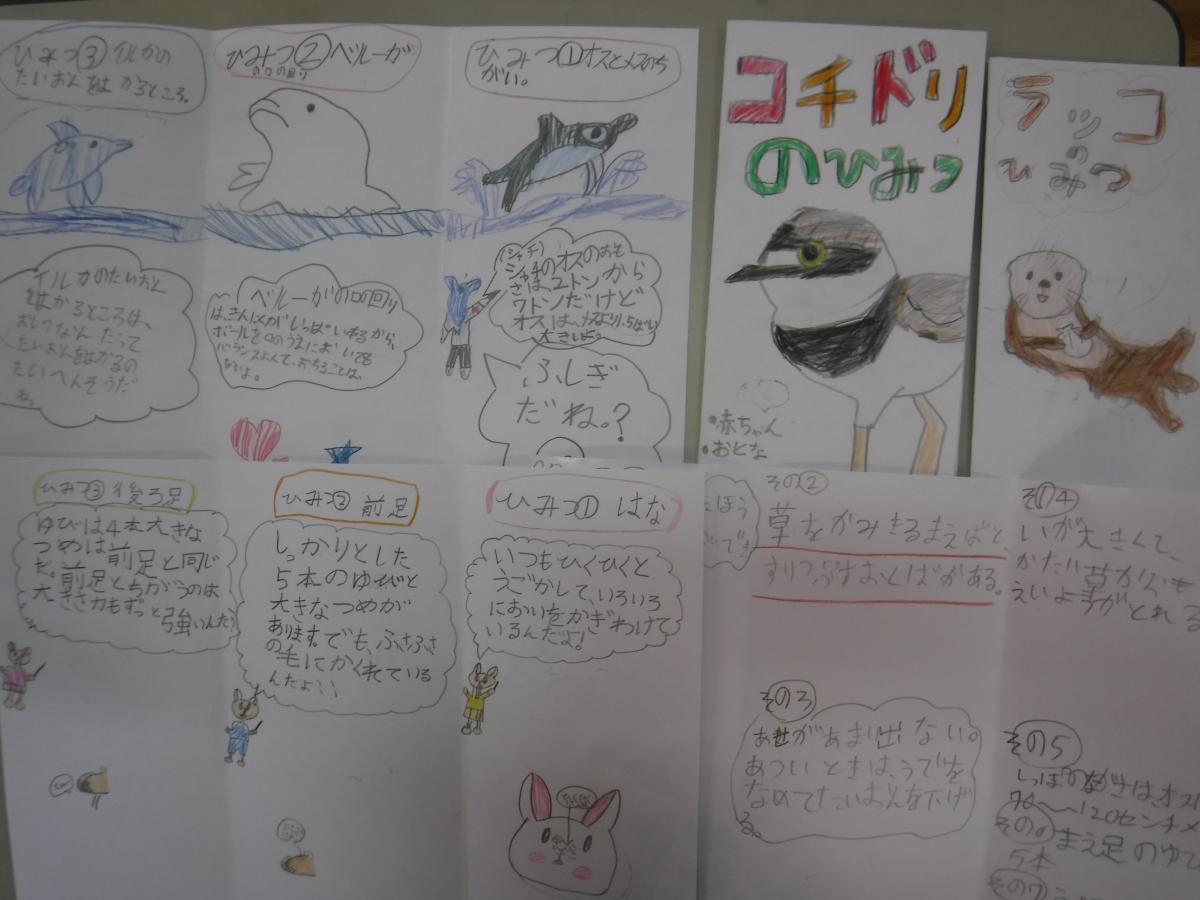 ひみつ③イルカの
たいおんをはかるところ。
イルカのたいおん
をはかるところは、
おしりなんだって
たいおんをはかるの
たいへんそうだ
ね。
ひみつ②ベルーガ
の口の回り
ベルーガの口の回り
は、きんにくがいっぱいあるから、
ボールを口のうえにおいても
バランスよくて、おちることは
ないよ。
ひみつ①オスとメスのち
がい。
(シャチ)
シャチのオスのおも
さは、2トンから
7トンだけど
オスは、メスより1.5ばい
大きいよ。
ふしぎ
だね。?
コチドリ
のひみつ
・赤ちゃん
・おとな
ラッコ
の
ひみつ
ひみつ③後ろ足
ゆびは4本大きな
つめは前足と同じ
だ。前足とちがうのは
大きさ力もずっと強いんだ
ひみつ② 前足
しっかりとした
5本のゆびと
大きなつめが
あります。でも、ふさふさ
の毛にかくれている
んだよ!!
ひみつ① はな
いつもひくひくと
うごかして、いろいろ
においをかぎわけて
いるんだよ!
その②
草をかみきるまえばと、
すりつぶすおくばがある。
その3
あせがあまり出ない。
あついときは、うでを
なめてたいおんを下げ
る。
その4
いが大きくて、
かたい草からも
えいようがとれる
その5
しっぽのながさは、オス
70〜120センチメ
その6 まえ足のゆび
5本
その7